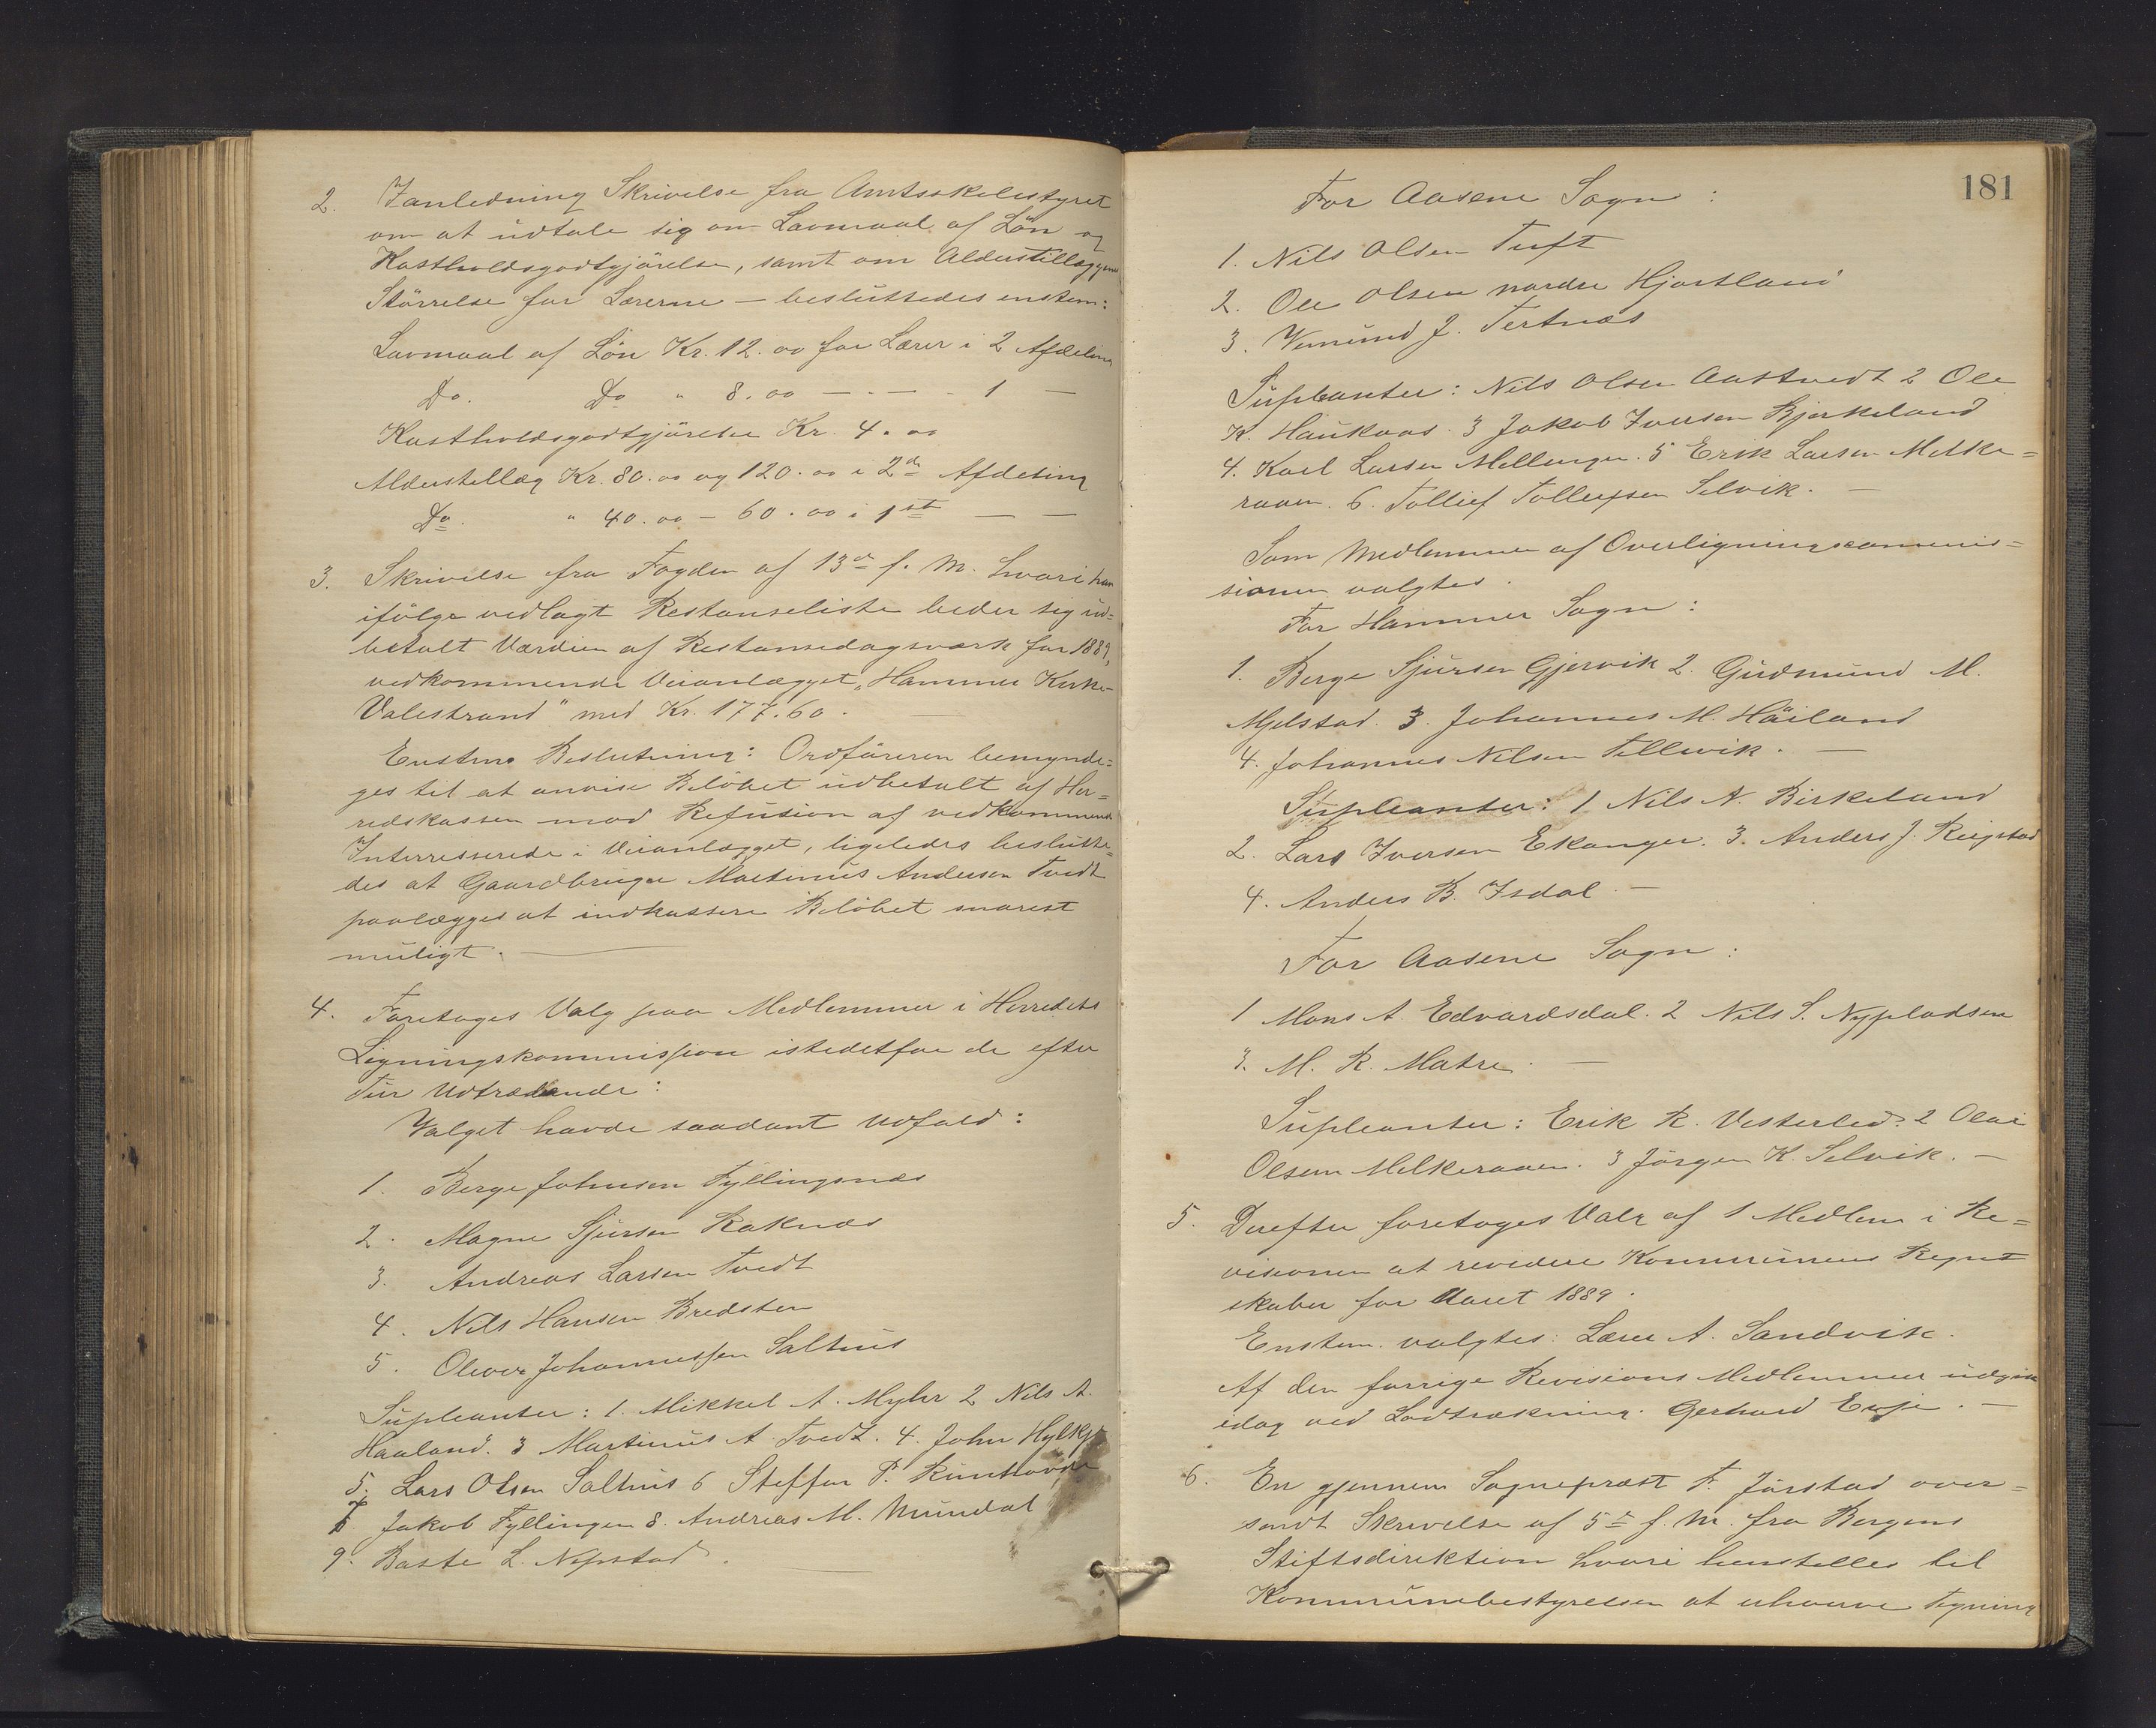 2. I anledning Skrivelse fra Amtsskolestyret
om at udtale sig om Lavmaal af Lön og
Kostholdsgodtgjörelse, samt om Alderstillæggenes
Störrelse for Lærerne – besluttedes enstem:
Lavmaal af Lön Kr. 12.00 for Lærer i 2 Afdeling
Do. Do " 8.00 — - — - 1 —
Kostholdsgodtgjörelse Kr. 4.00
Alderstillæg Kr. 80.00 og 120.00 i 2den Afdeling
Do. " 40.00 – 60.00 i 1st — —
3. Skrivelse fra Fogden af 13de f. M. hvori han
ifölge vedlagt Restanseliste beder sig ud=
betalt Værdien af Restansedagsværk for 1889,
vedkommende Veianlægget „Hammer Kirke-
Valestrand" med Kr. 177.60. —
Enstem. Beslutning: Ordföreren bemyndi=
ges til at anvise Belöbet udbetalt af Her=
redskassen mod Refusion af vedkommende
Interresserede i Veianlægget, ligeledes beslutte=
des at Gaardbruger Martinus Andersen Tvedt
paalægges at indkassere Belöbet snarest
muligt. —
4. Foretoges Valg paa Medlemmer i Herredets
Ligningskommission istedetfor de efter
Tur Udtrædende:
Valget havde saadant Udfald:
1. Berge Johnsen Fyllingsnæs
2. Magne Sjursen Raknæs
3. Andreas Larsen Tvedt
4. Nils Hansen Bredsten
5. Oliver Johannessen Salthus
Supleanter: 1. Mikkel A. Myhr 2 Nils A.
Haaland. 3 Martinus A Tvedt. 4. John Hylkje
5. Lars Olsen Salthus 6 Steffen P. Runhovde
7. Jakob Fyllingen 8. Andreas M. Mundal
9. Baste L. Nepstad. —
181
For Aasene Sogn:
1. Nils Olsen Tuft
2. Ole Olsen nordre Hjortland
3. Vemund J. Tertnæs
Supleanter: Nils Olsen Aastvedt 2 Ole
K. Haukaas. 3 Jakob Iversen Bjørkeland
4. Karl Larsen Mellingen. 5 Erik Larsen Melke=
raaen. 6. Tollief Tollefsen Selvik. —
Som Medlemmer af Overligningscommis=
sionen valgtes.
For Hammer Sogn:
1. Berge Sjursen Gjervik 2. Gudmund M.
Mjelstad. 3. Johannes M. Häiland
4. Johannes Nilsen Tellevik. —
Supleanter: 1 Nils N. Birkeland
2. Lars Iversen Ekanger. 3. Anders J. Reigstad
4. Anders B. Isdal. —
For Aasene Sogn:
1 Mons A. Edvardsdal. 2 Nils S. Nypladsen
3. M. R. Matre. —
Supleanter: Erik R. Vesterlid. 2 Olai
Olsen Melkeraaen. 3 Jörgen K. Selvik. —
5. Derefter foretoges Valg af 1 Medlem i Re=
visionen at revidere Kommunens Regns
skaber for Aaret 1889.
Enstem. valgtes: Lærer A. Sandvik.
Af den forrige Revisions Medlemmer udgik
idag ved Lodtrækning. Gerhard Evje. —
6. En gjennem Sogneprest F. Jörstad over=
sendt Skrivelse af 5te f. M. fra Bergens
Stiftsdirektion hvori henstilles til
Kommunebestyrelsen at erhverve Tegning